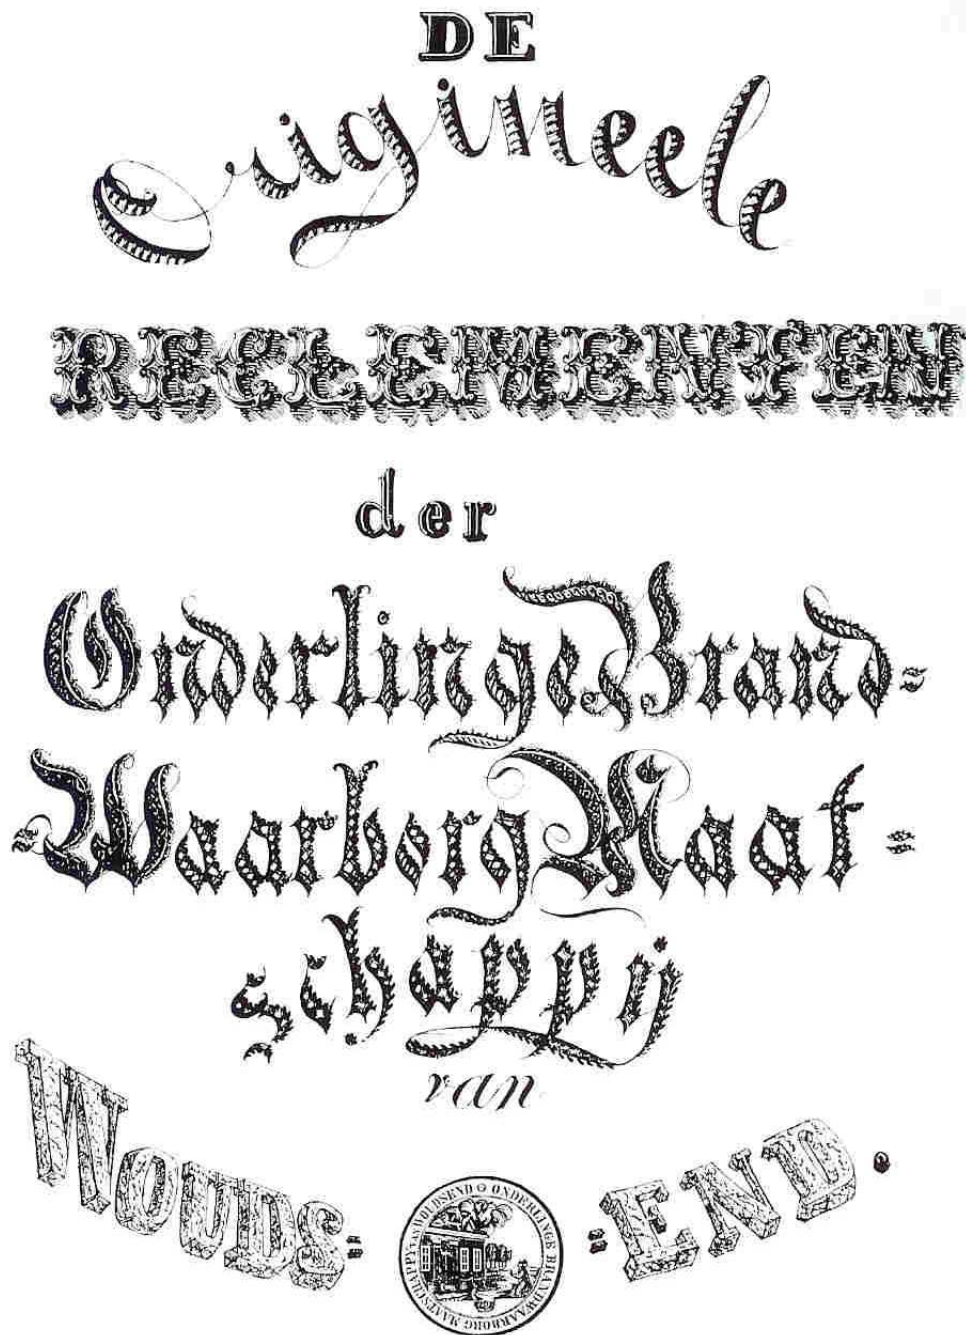 DE
Origineele
REGLEMENTEN
der
Onderlinge Brand=
=Waarborg Maat=
schappij
van
WOUDS=
=END.
ONDERLINGE BRANDWAARBORG MAATSCHAPPY VAN WOUDSEND